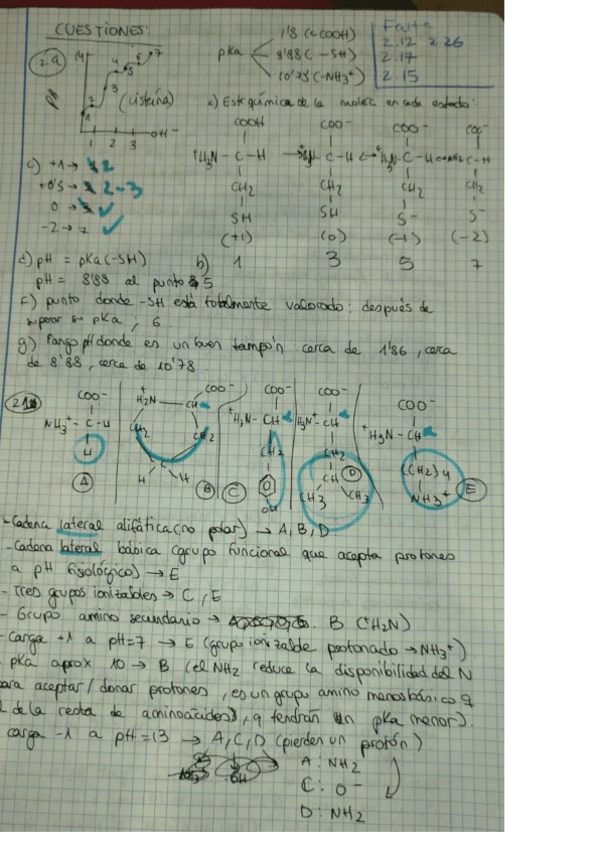 CUESTIONES:
2.9
14
pH
1 2 3 4 5 6 7
(cisteína)
1 2 3 OH⁻
pKa
1'8 (COOH)
8'88 (-SH)
10'78 (-NH3⁺)
Falta
2.12 2.26
2.17
2.15
a) Estr química de la moléc en cada estado:
COOH COO⁻ COO⁻ COO⁻
⁺H3N - C - H C - H C - H NH2 C - H
CH2 CH2 CH2 CH2
SH SH S⁻ S⁻
(+1) (0) (-1) (-2)
b) 1 3 5 7
c) +1 → 2
+0'5 → 2-3
0 → 3
-2 → 7
d) pH = pKa (-SH)
pH = 8'88 al punto 5
f) punto donde -SH está totalmente valorado: después de
superar su pKa; 6.
g) Rango pH donde es un buen tampón cerca de 1'86, cerca
de 8'88, cerca de 10'78.
COO⁻
NH3⁺ - C - H
H
A
⁺H2N - CH COO⁻
CH2 CH2
C
H H
B
COO⁻
⁺H3N - CH
CH2
OH
C
COO⁻
H3N⁺ - CH
CH2
CH
CH3 CH3
D
COO⁻
⁺H3N - CH
(CH2)4
NH3⁺
E
- Cadena lateral alifática (no polar) → A, B, D.
- Cadena lateral básica (grupo funcional que acepta protones
a pH fisiológico) → E
- Tres grupos ionizables → C, E
- Grupo amino secundario → B (⁺H2N)
- Carga +1 a pH=7 → E (grupo ionizable protonado → NH3⁺)
pKa aprox 10 → B (el NH2 reduce la disponibilidad del N
para aceptar/donar protones, es un grupo amino menos básico q
de la resta de aminoácidos, q tendrán un pKa menor).
carga -1 a pH=13 → A, C, D (pierden un protón)
OH
A: NH2
C: O⁻
D: NH2